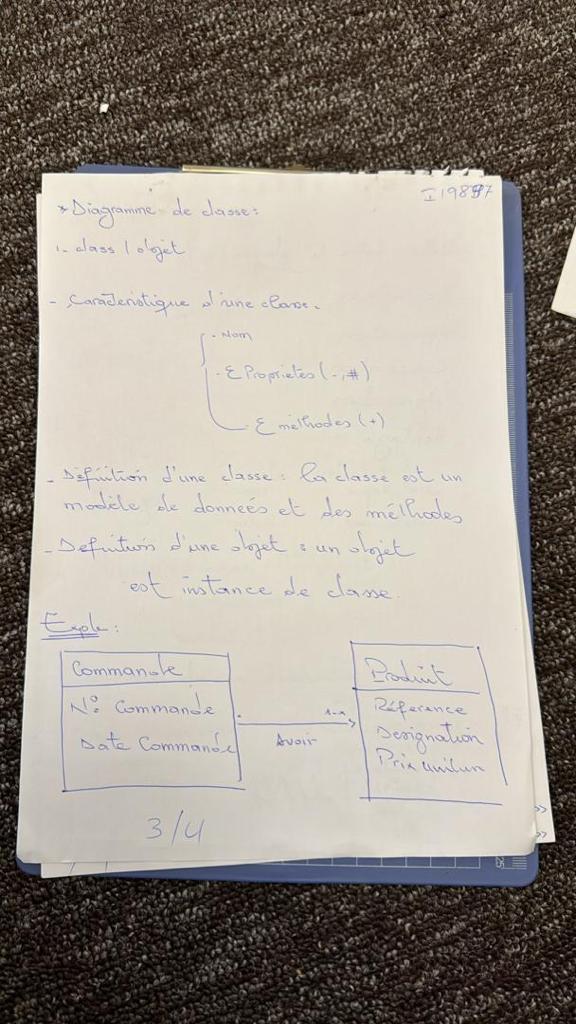 * Diagramme de classe:
1- class / objet
- Caracteristique d'une classe.
. Nom
. Σ Proprietes (-, #)
. Σ méthodes (+)
- Définition d'une classe : la classe est un
modèle de données et des méthodes
- Definition d'une objet : un objet
est instance de classe.
Exple :
Commande
N° Commande
Date Commande
Avoir
1-n
Produit
Réference
Designation
Prix
3/4